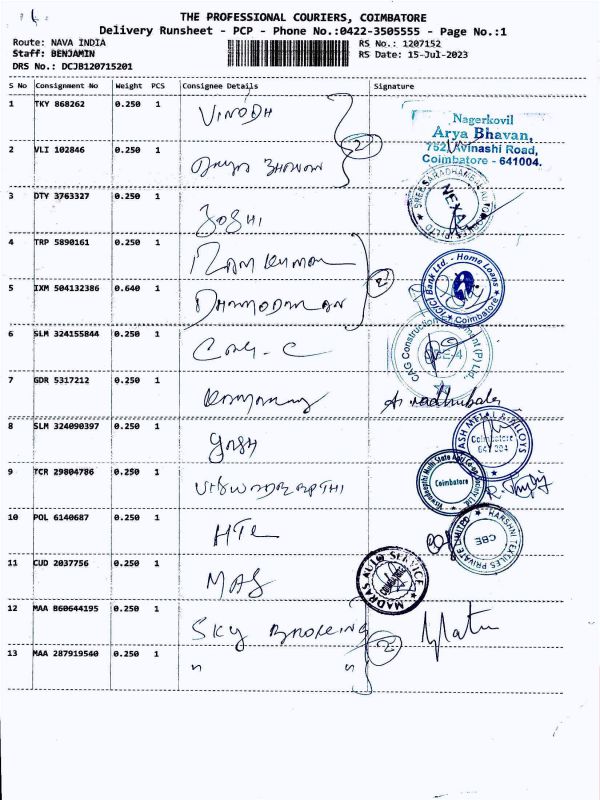 THE PROFESSIONAL COURIERS, COIMBATORE
Delivery Runsheet - PCP - Phone No.:0422-3505555 - Page No.:1
Route: NAVA INDIA RS No.: 1207152
Staff: BENJAMIN RS Date: 15-Jul-2023
DRS No.: DCJB120715201
S No Consignment No Weight PCS Consignee Details Signature
1 TKY 868262 0.250 1 VINODH
Nagerkovil
Arya Bhavan,
752, Avinashi Road,
Coimbatore - 641004.
2 VLI 102846 0.250 1 2
3 DTY 3763327 0.250 1 JOSHI
SREE SARADHAMBAL AUTO
NEXA
4 TRP 5890161 0.250 1 RAMKUMAR
5 IXM 504132386 0.640 1 DHAMODARAN 2
ICICI Bank Ltd. - Home Loans
Coimbatore
6 SLM 324155844 0.250 1
CAG Construction (P) Ltd.
CBE-4
7 GDR 5317212 0.250 1
8 SLM 324090397 0.250 1 YASH
YASH METAL & ALLOYS
Coimbatore
9 TCR 29804786 0.250 1
Coimbatore
10 POL 6140687 0.250 1 HTL
HARSHNI TEXTILES PRIVATE LIMITED
CBE
11 CUD 2037756 0.250 1 MAS
MADRAS AUTO SERVICE
12 MAA 860644195 0.250 1 SKY
13 MAA 287919540 0.250 1 " " 2